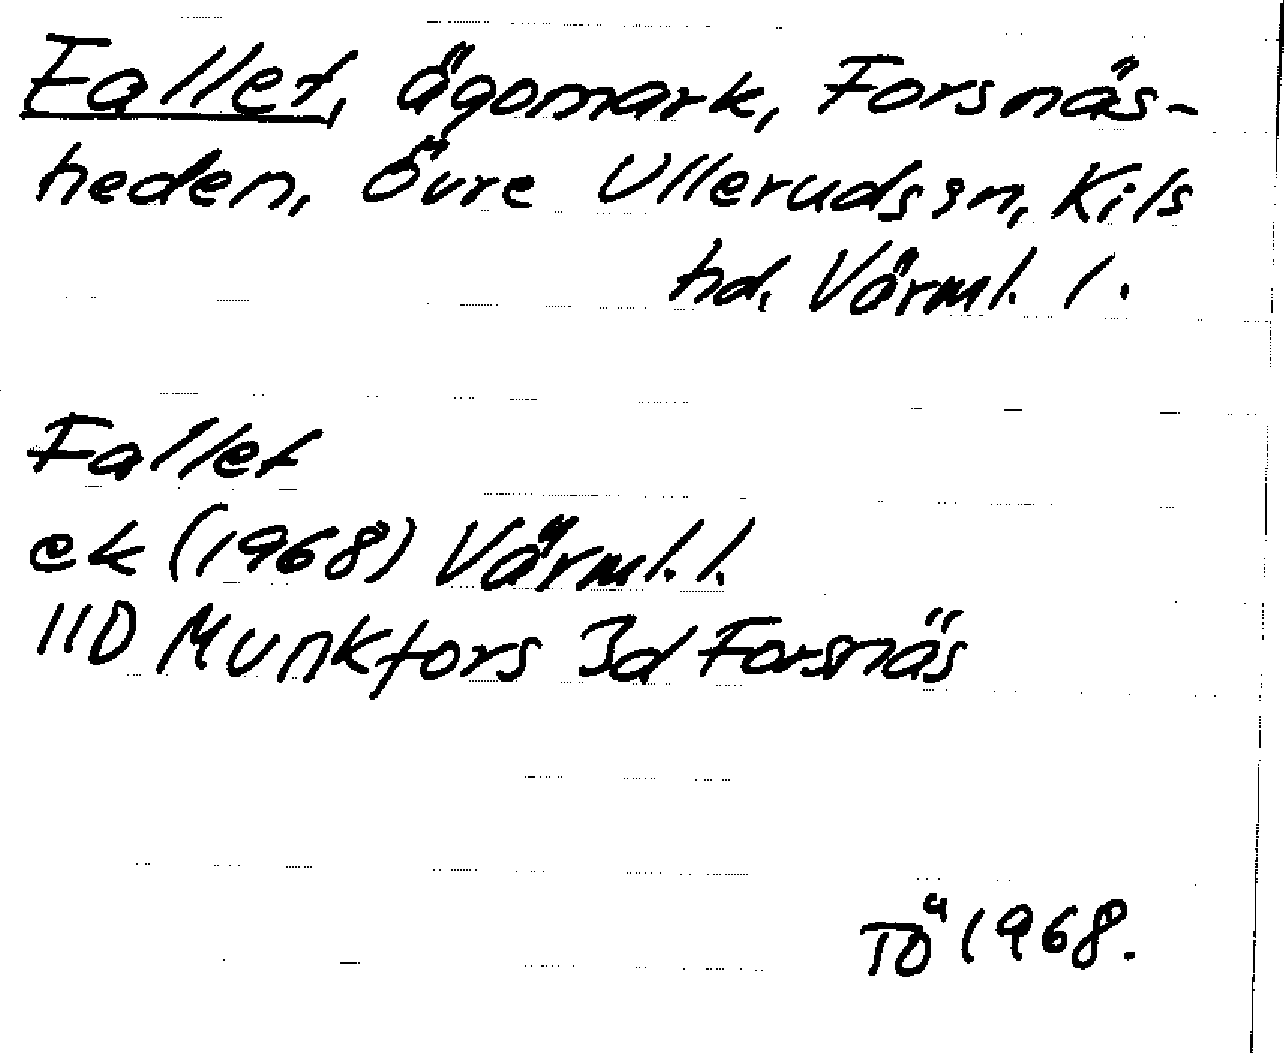 Fallet, ägomark, Forsnäs-
heden, Övre Ullerudssn, Kils
hd, Värml. l.
Fallet
ek (1968) Värml. l.
11D Munkfors 3d Forsnäs
TÖ 1968.